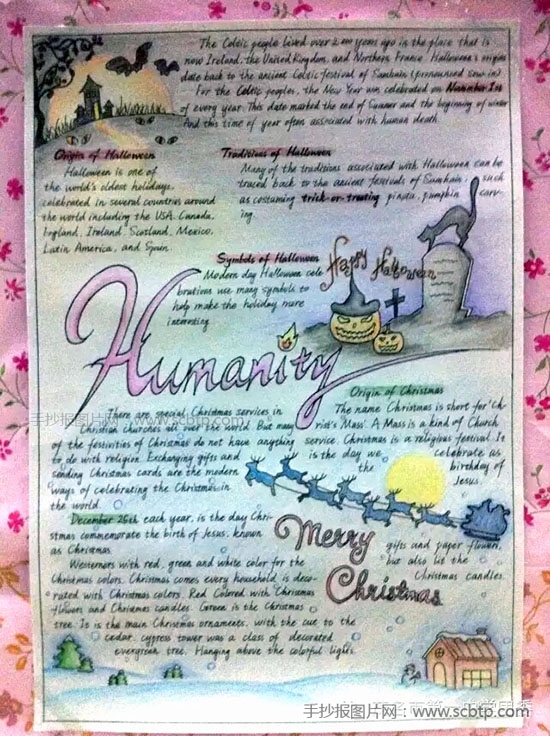 The Celtic people lived over 2,000 years ago in the place that is
now Ireland, the United Kingdom, and Northern France. Halloween's origins
date back to the ancient Celtic festival of Samhain (pronounced sow-in)
For the Celtic peoples, the New Year was celebrated on November 1st
of every year. This date marked the end of Summer and the beginning of winter
And this time of year often associated with human death.
Origin of Halloween
Halloween is one of
the world's oldest holidays,
celebrated in several countries around
the world including the USA, Canada,
England, Ireland, Scotland, Mexico,
Latin America, and Spain.
Traditions of Halloween
Many of the traditions associated with Halloween can be
traced back to the ancient festivals of Samhain, such
as costuming trick-or-treating pinata, pumpkin carv-
ing.
Symbols of Halloween
Modern day Halloween cele
brations use many symbols to
help make the holiday more
interesting
Happy Halloween
Humanity
There are special Christmas services in
Christian churches all over the world. But many
of the festivities of Christmas do not have anything
to do with religion. Exchanging gifts and
sending Christmas cards are the modern
ways of celebrating the Christmas in
the world.
Origin of Christmas
The name Christmas is short for 'Ch-
rist's Mass'. A Mass is a kind of Church
service. Christmas is a religious festival. It
is the day we celebrate as
the birthday of
Jesus.
December 25th each year, is the day Chri-
stmas commemorate the birth of Jesus, known
as Christmas
Westerners with red, green and white color for the
Christmas colors. Christmas comes every household is deco-
rated with Christmas colors. Red Colored with Christmas
flowers and Christmas candles. Green is the Christmas
tree. It is the main Christmas ornaments, with the cut to the
cedar, cypress tower was a class of decorated
evergreen tree. Hanging above the colorful lights,
gifts and paper flowers,
but also lit the
Christmas candles.
Merry
Christmas
手抄报图片网 www.scbtp.com
手抄报图片网：www.scbtp.com